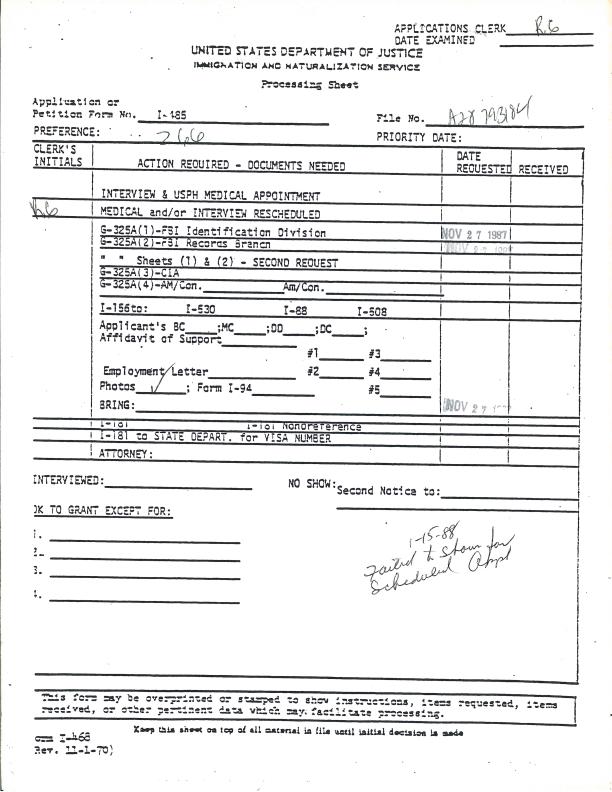 APPLICATIONS CLERK RG
DATE EXAMINED
UNITED STATES DEPARTMENT OF JUSTICE
IMMIGRATION AND NATURALIZATION SERVICE
Processing Sheet
Application or
Petition Form No. I-485
File No. A28 793184
PREFERENCE: 266
PRIORITY DATE:
CLERK'S INITIALS
ACTION REQUIRED - DOCUMENTS NEEDED
DATE REQUESTED RECEIVED
INTERVIEW & USPH MEDICAL APPOINTMENT
RG MEDICAL and/or INTERVIEW RESCHEDULED
G-325A(1)-FBI Identification Division NOV 27 1987
G-325A(2)-FBI Records Branch NOV 27
" " Sheets (1) & (2) - SECOND REQUEST
G-325A(3)-CIA
G-325A(4)-AM/Con. Am/Con.
I-156to: I-530 I-88 I-508
Applicant's BC ;MC ;DD ;DC ;
Affidavit of Support
#1 #3
Employment Letter #2 #4
Photos ✓ ; Form I-94 #5
BRING: NOV 27
I-181 I-181 Nonpreference
I-181 to STATE DEPART. for VISA NUMBER
ATTORNEY:
INTERVIEWED:
NO SHOW:
Second Notice to:
OK TO GRANT EXCEPT FOR:
1.
2.
3.
4.
1-15-88
Failed to Show for
Scheduled Appt
This form may be overprinted or stamped to show instructions, items requested, items
received, or other pertinent data which may facilitate processing.
Keep this sheet on top of all material in file until initial decision is made
orm I-468
Rev. 11-1-70)